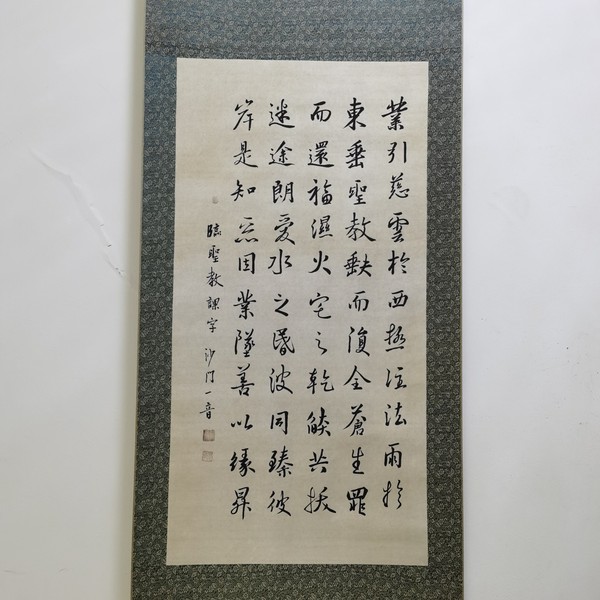 業引慈雲於西極注法雨於
東垂聖教缺而復全蒼生罪
而還福濕火宅之乾燄共拔
迷途朗愛水之昬波同臻彼
岸是知惡因業墜善以緣昇
臨聖教課字 沙門一音